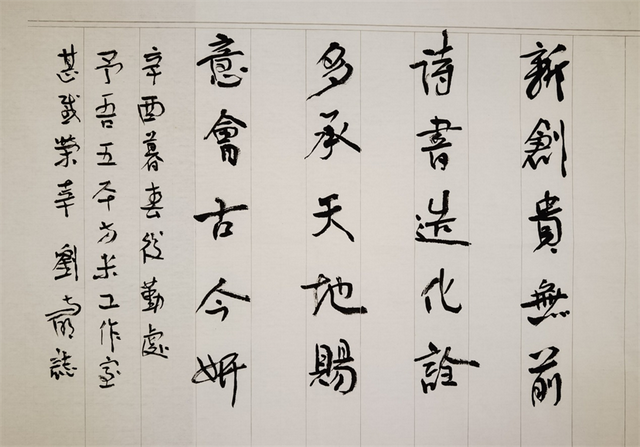 新創貴無前
詩書造化詮
多承天地賜
意會古今妍
辛酉暮春後勤處
予吾五平方米工作室
甚感榮幸 劉 誌